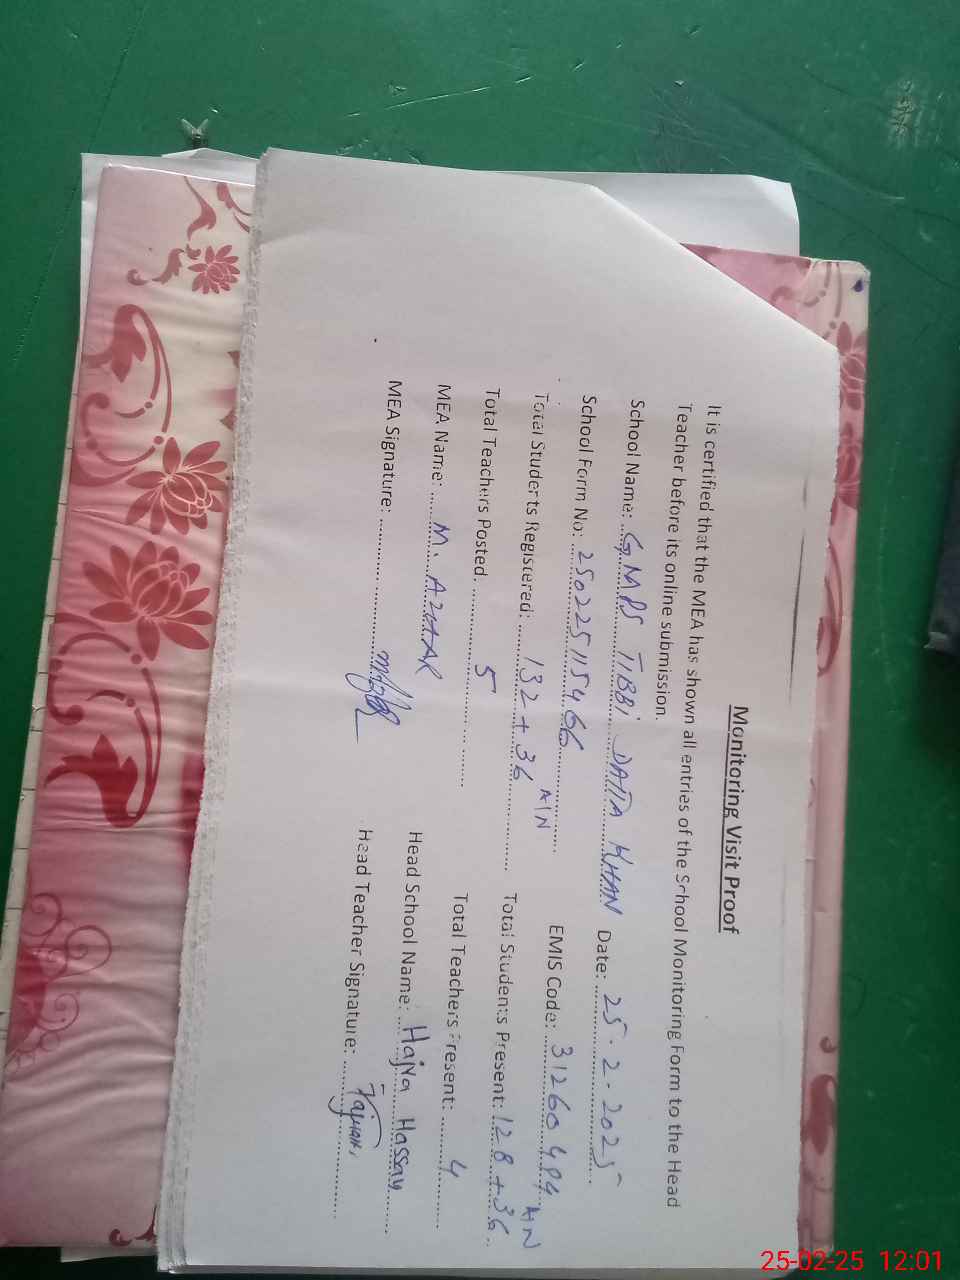 Monitoring Visit Proof
It is certified that the MEA has shown all entries of the School Monitoring Form to the Head
Teacher before its online submission.
School Name: GMPS TIBBI DATTA KHAN Date: 25.2.2025
School Form No: 250225115466 EMIS Code: 31260484
Total Students Registered: 132 + 36 Total Students Present: 128 + 36
Total Teachers Posted 5 Total Teachers Present: 4
MEA Name: M. AZHAR Head School Name: Hajra Hassan
MEA Signature: Head Teacher Signature:
25-02-25 12:01